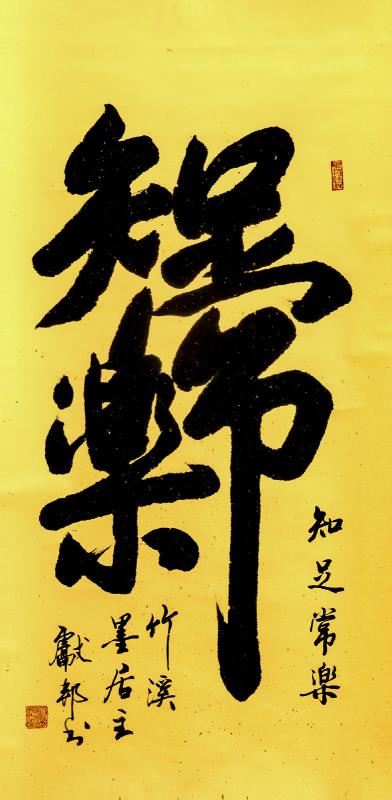 知足常樂
知足常樂
竹溪
墨居主
獻邦书